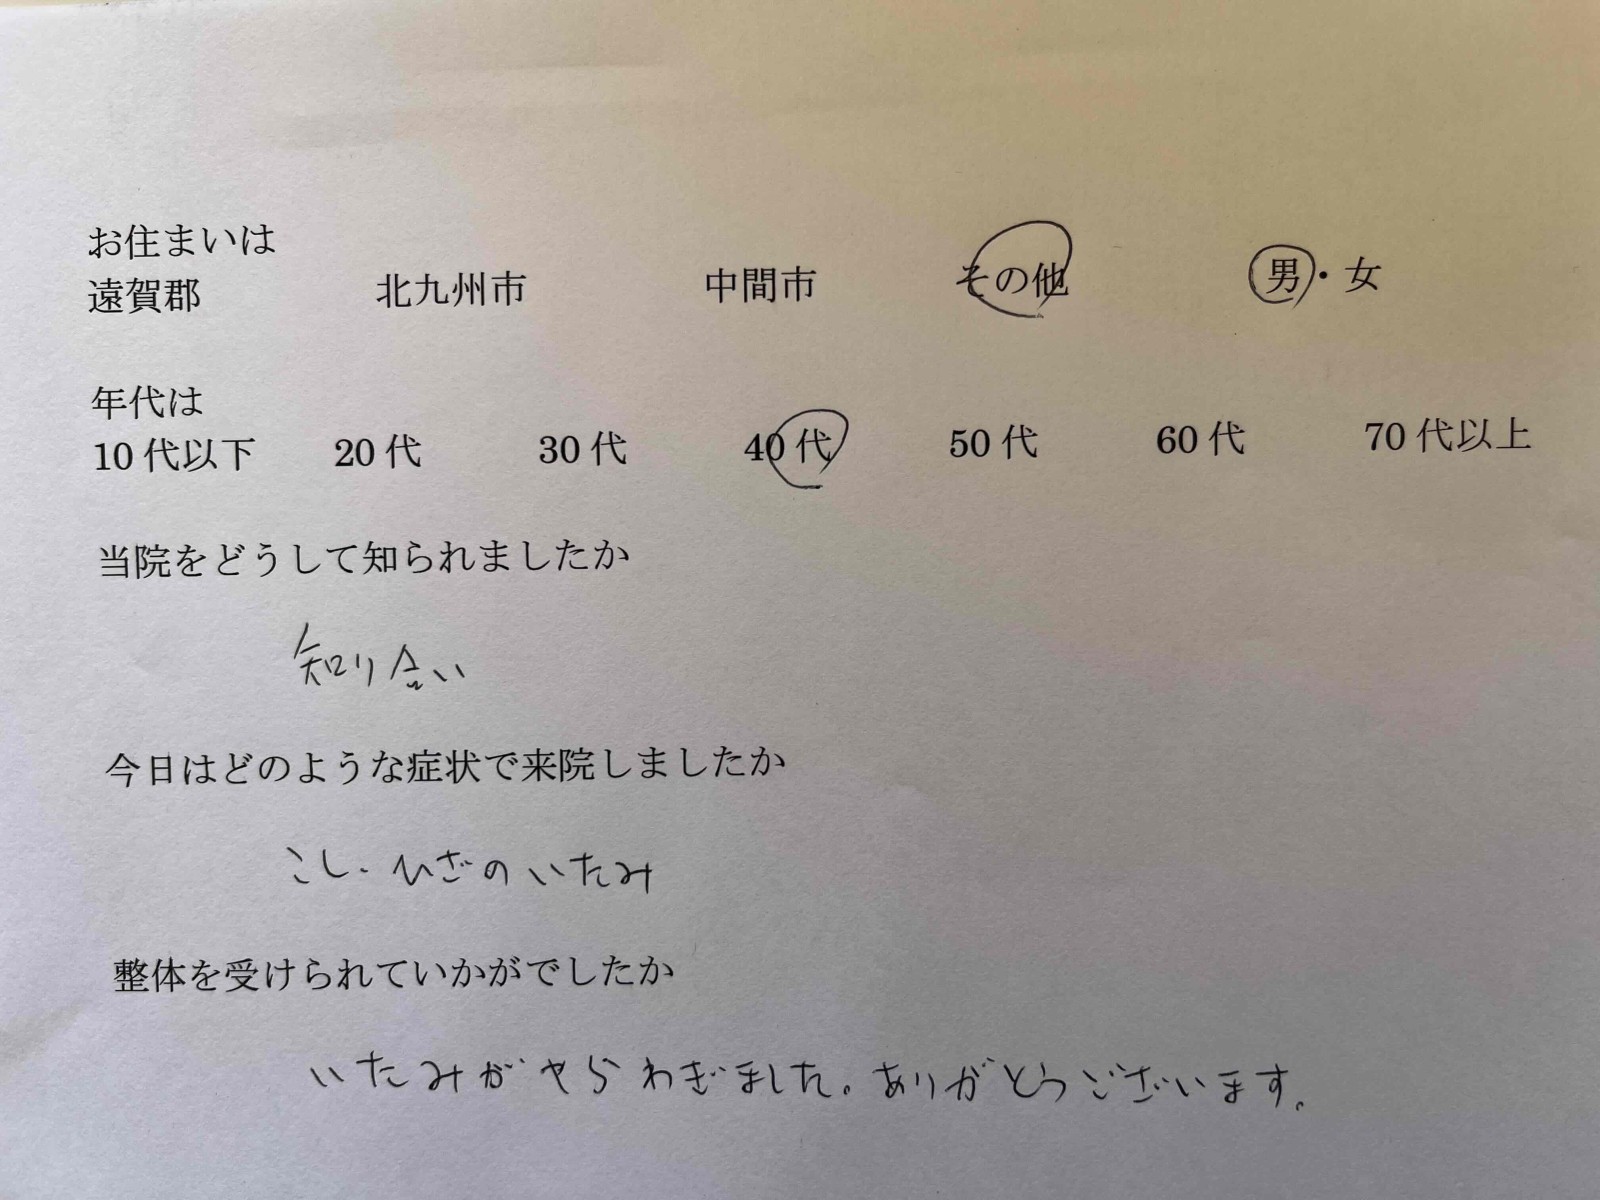 お住まいは
遠賀郡 北九州市 中間市 その他 男・女
年代は
10代以下 20代 30代 40代 50代 60代 70代以上
当院をどうして知られましたか
知り合い
今日はどのような症状で来院しましたか
こし・ひざのいたみ
整体を受けられていかがでしたか
いたみがやらわぎました。ありがとうございます。